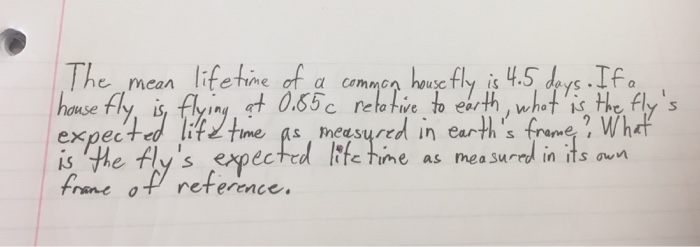 The mean lifetime of a common housefly is 4.5 days. If a
house fly is flying at 0.85c relative to earth, what is the fly's
expected life time as measured in earth's frame? What
is the fly's expected life time as measured in its own
frame of reference.